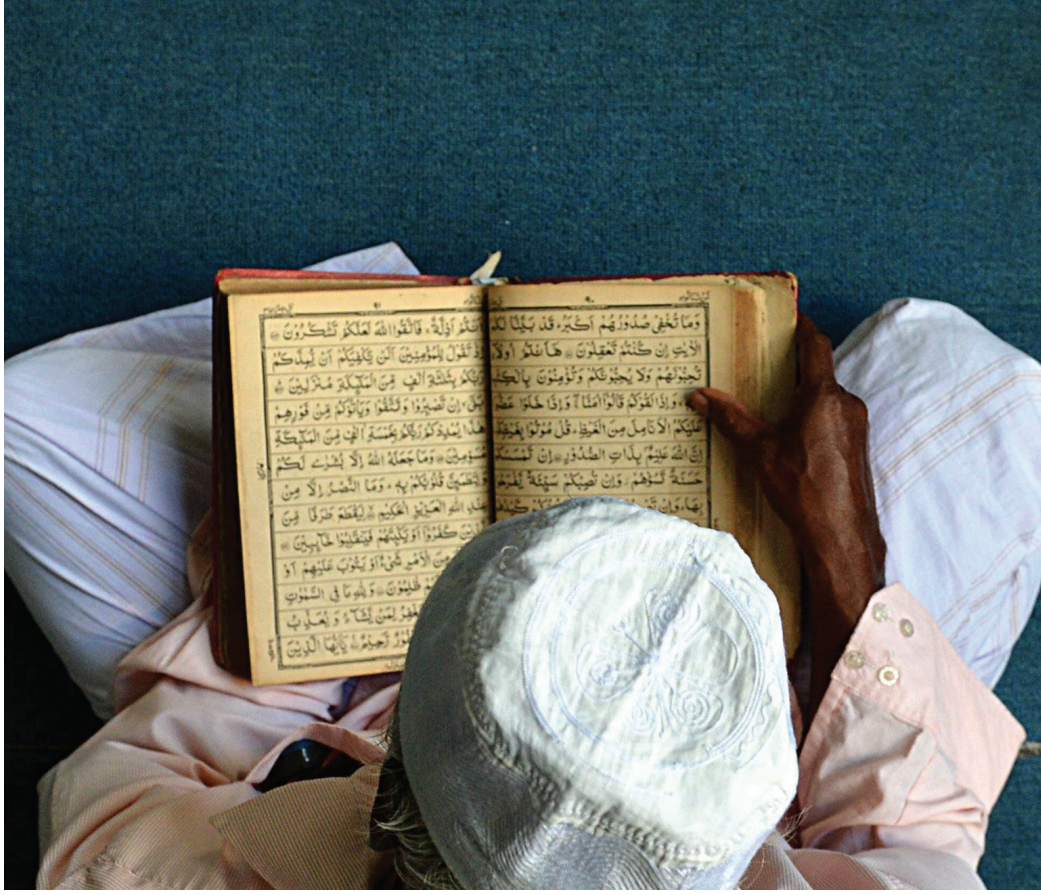 ٩٠
وَمَا تُخْفِي صُدُورُهُمْ اَكْبَرُ ؕ قَدْ بَيَّنَّا
الْاٰيٰتِ اِنْ كُنْتُمْ تَعْقِلُوْنَ هٰۤاَنْتُمْ اُولَاۤءِ
تُحِبُّوْنَهُمْ وَلَا يُحِبُّوْنَكُمْ وَتُؤْمِنُوْنَ
وَاِذَا لَقُوْكُمْ قَالُوْۤا اٰمَنَّا وَاِذَا خَلَوْا
عَلَيْكُمُ الْاَنَامِلَ مِنَ الْغَيْظِ ؕ قُلْ مُوْتُوْا
اِنَّ اللّٰهَ عَلِيْمٌۢ بِذَاتِ الصُّدُوْرِ اِنْ
حَسَنَةٌ تَسُؤْهُمْ وَاِنْ تُصِبْكُمْ سَيِّئَةٌ
بِهَا وَاِنْ
٩١
وَاَنْتُمْ اَذِلَّةٌ فَاتَّقُوا اللّٰهَ لَعَلَّكُمْ تَشْكُرُوْنَ
اِذْ تَقُوْلُ لِلْمُؤْمِنِيْنَ اَلَنْ يَّكْفِيَكُمْ اَنْ يُّمِدَّكُمْ
رَبُّكُمْ بِثَلٰثَةِ اٰلٰفٍ مِّنَ الْمَلٰٓئِكَةِ مُنْزَلِيْنَ
بَلٰى اِنْ تَصْبِرُوْا وَتَتَّقُوْا وَيَاْتُوْكُمْ مِّنْ فَوْرِهِمْ
هٰذَا يُمْدِدْكُمْ رَبُّكُمْ بِخَمْسَةِ اٰلٰفٍ مِّنَ الْمَلٰٓئِكَةِ
مُسَوِّمِيْنَ وَمَا جَعَلَهُ اللّٰهُ اِلَّا بُشْرٰى لَكُمْ
وَلِتَطْمَئِنَّ قُلُوْبُكُمْ بِهٖ وَمَا النَّصْرُ اِلَّا مِنْ
عِنْدِ اللّٰهِ الْعَزِيْزِ الْحَكِيْمِ لِيَقْطَعَ طَرَفًا مِّنَ
كَفَرُوْۤا اَوْ يَكْبِتَهُمْ فَيَنْقَلِبُوْا خَآئِبِيْنَ
مِنَ الْاَمْرِ شَيْءٌ اَوْ يَتُوْبَ عَلَيْهِمْ اَوْ
ظٰلِمُوْنَ وَلِلّٰهِ مَا فِي السَّمٰوٰتِ
لِمَنْ يَّشَآءُ وَ يُعَذِّبُ
رَّحِيْمٌ يٰۤاَيُّهَا الَّذِيْنَ